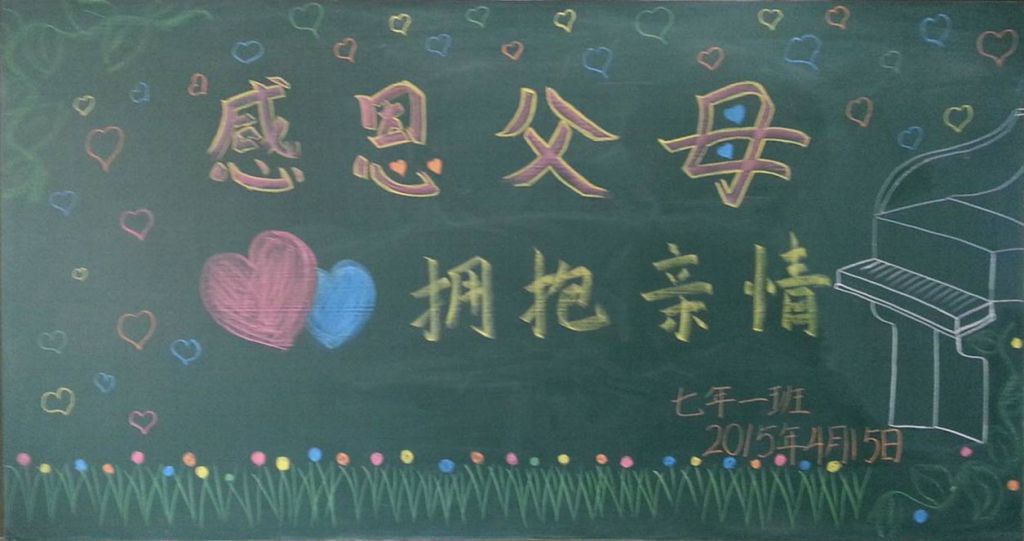 感恩父母
拥抱亲情
七年一班
2015年4月15日